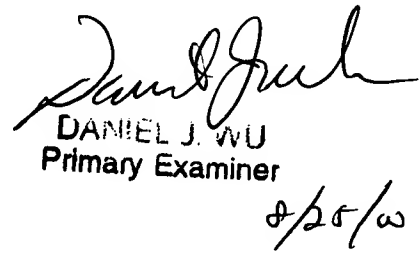 DANIEL J. WU
Primary Examiner
8/25/00